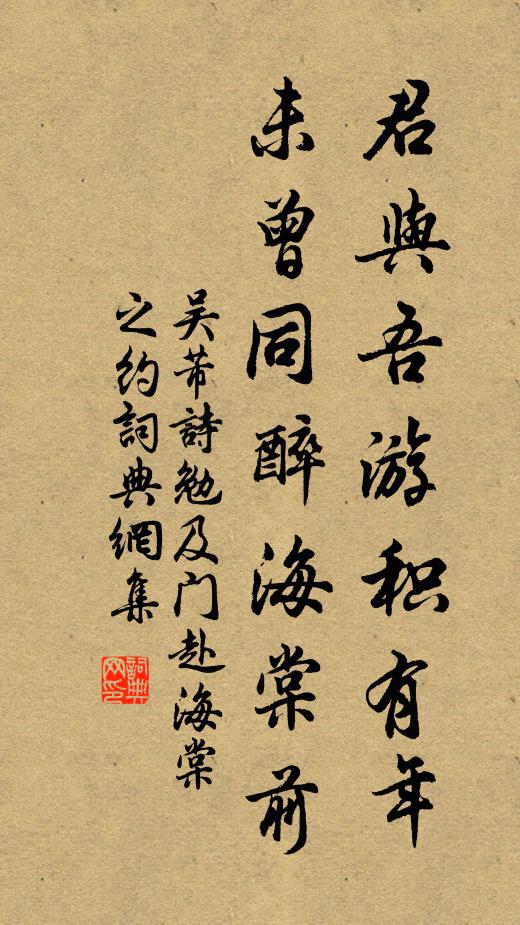 君與吾游积有年
未曾同醉海棠前
吴芾詩勉及门赴海棠
之約詞典網集
詞典
网印